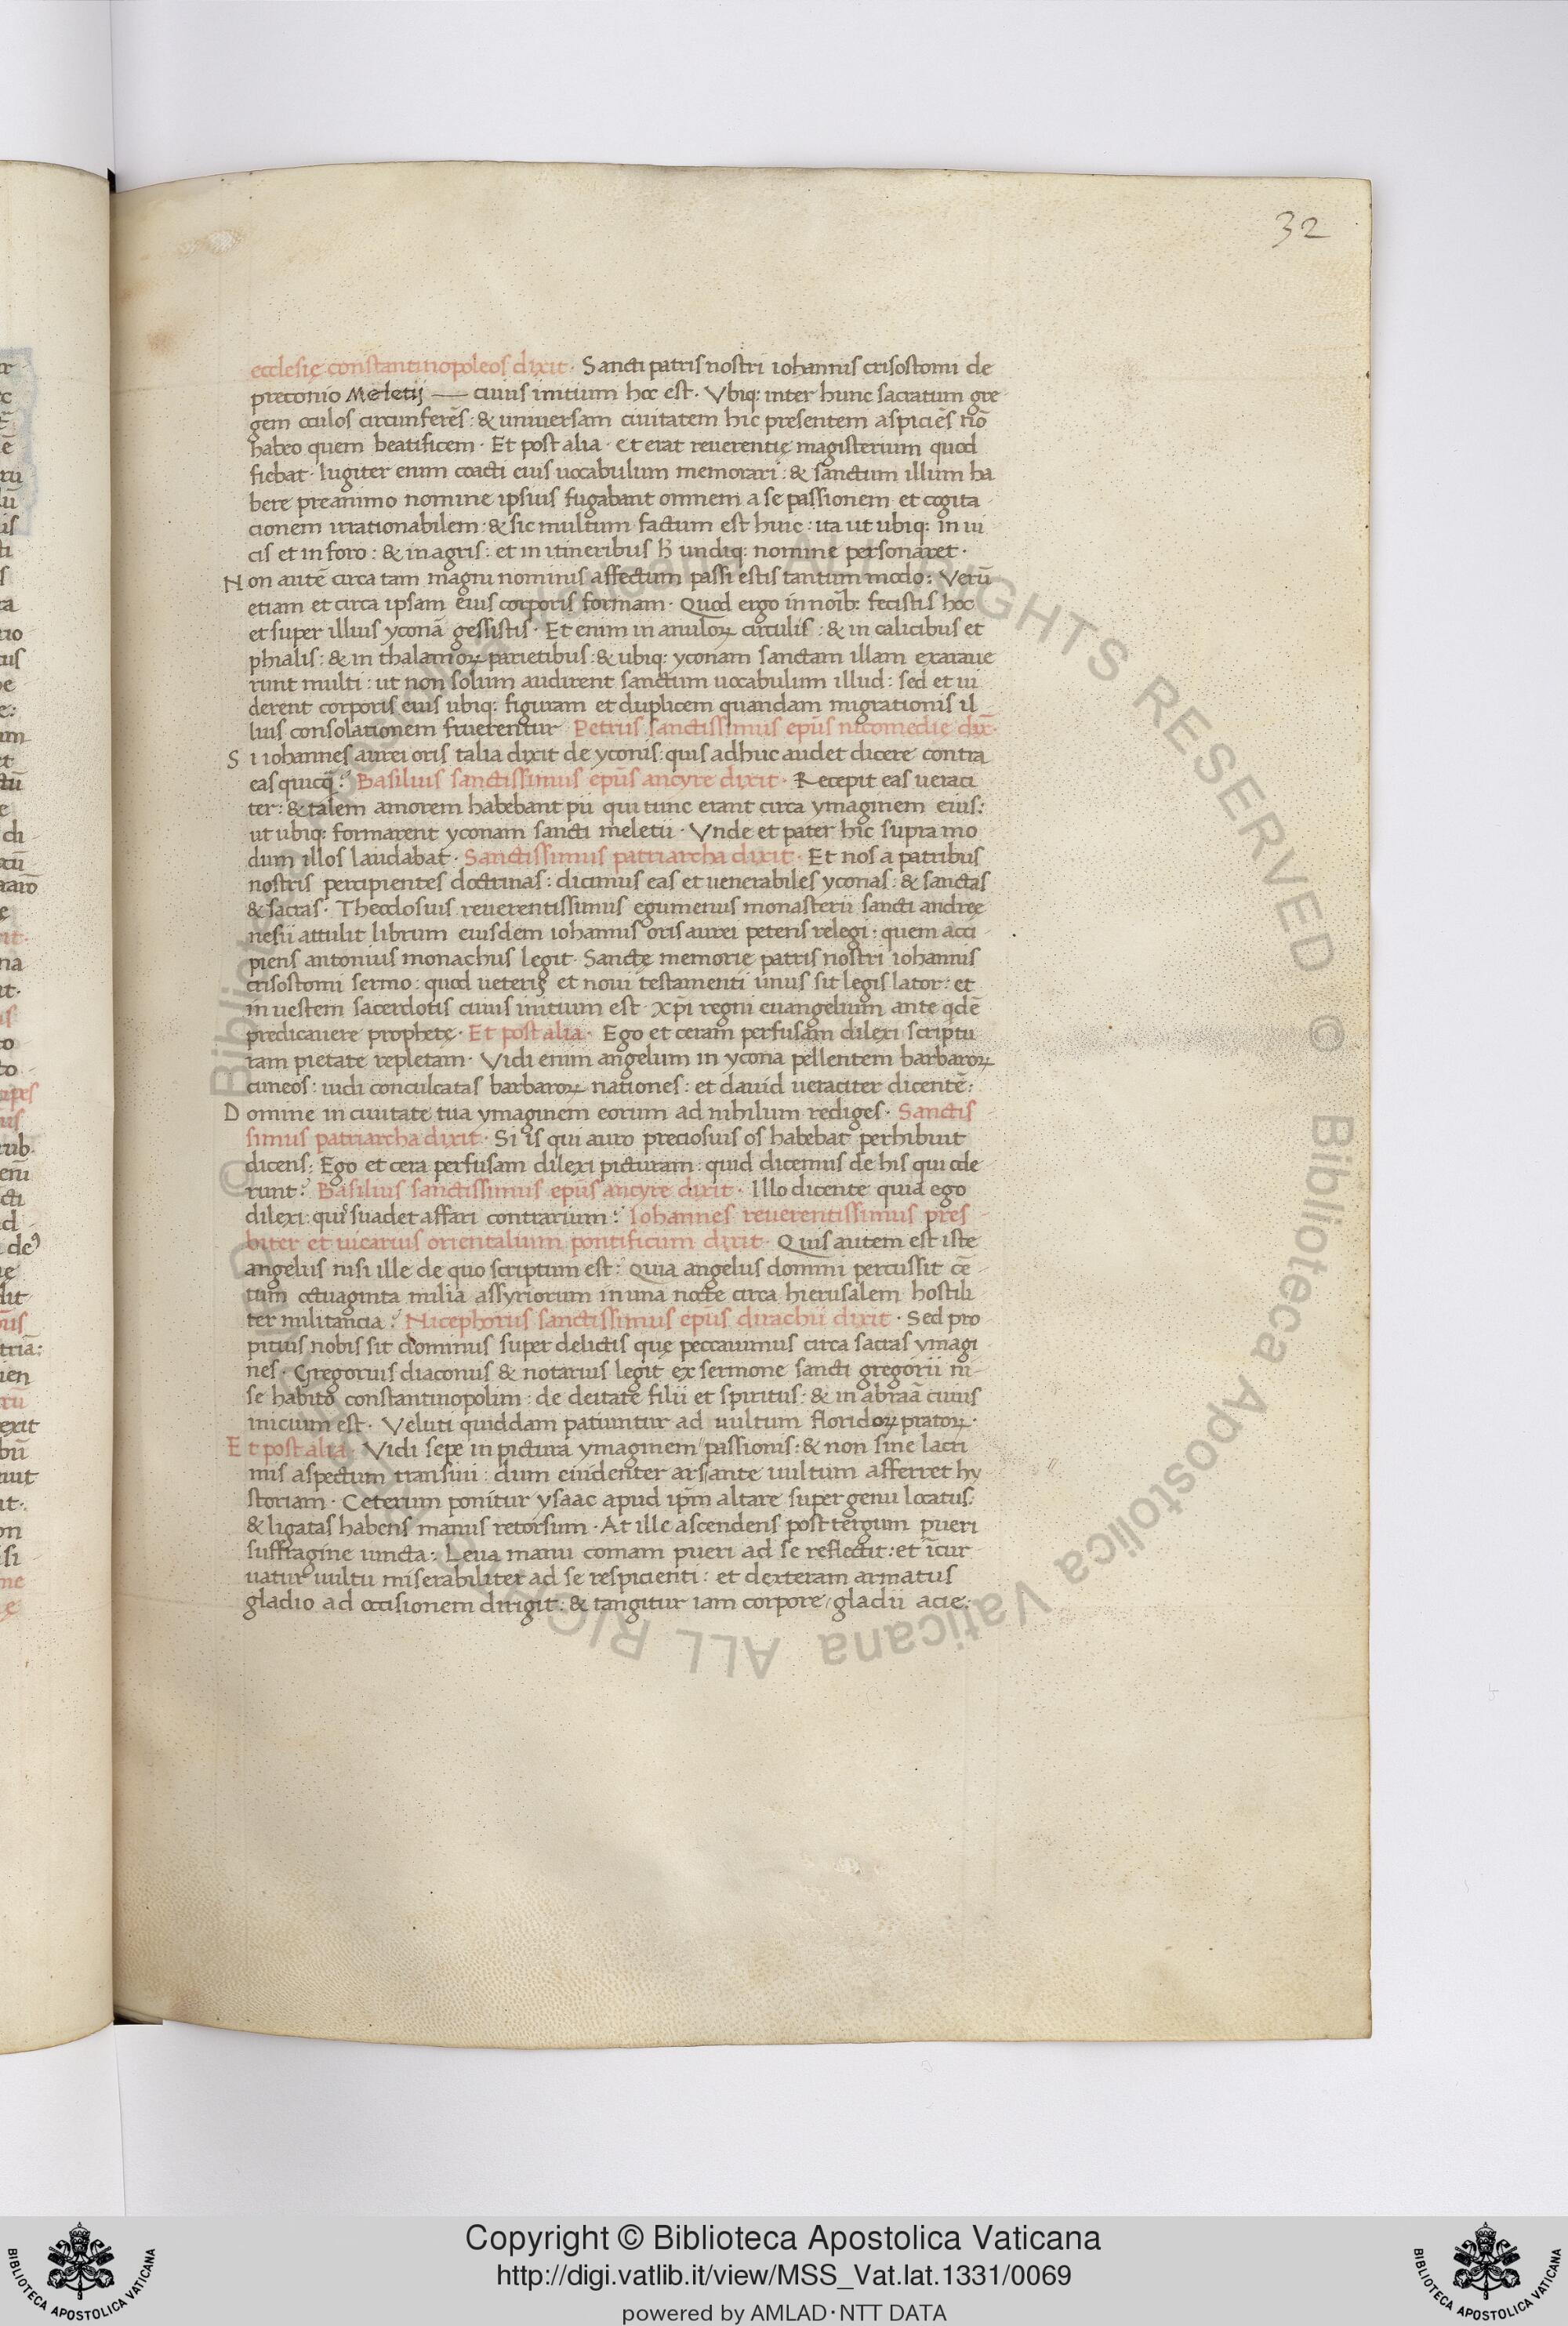 32
ecclesię constantinopoleos dixit · Sancti patris nostri iohannis crisostomi de
preconio Meletij — cuius initium hoc est · Vbiq: inter hunc sacratum gre
gem oculos circunferēs : & uniuersam ciuitatem hic presentem aspiciēs nō
habeo quem beatificem · Et post alia · et erat reuerentię magisterium quod
fiebat · Iugiter enim coacti eius uocabulum memorari : & sanctum illum ha
bere preanimo nomine ipsius fugabant omnem a se passionem et cogita
cionem irrationabilem : & sic multum factum est huic : ita ut ubiq: in ui
cis et in foro : & in agris : et in itineribus undiq: nomine personaret ·
Non autē circa tam magni nominis affectum passi estis tantum modo : Verū
etiam et circa ipsam eius corporis formam · Quod ergo in noīb: fecistis hoc
et super illius yconā gessistis · Et enim in anuloꝝ circulis : & in calicibus et
phialis : & in thalamoꝝ parietibus : & ubiq: yconam sanctam illam exaraue
runt multi : ut non solum audirent sanctum uocabulum illud : sed et ui
derent corporis eius ubiq: figuram et duplicem quandam migrationis il
lius consolationem fruerentur Petrus sanctissimus ep̄us nicomedie dix̄ ·
Si iohannes aurei oris talia dixit de yconis : quis adhuc audet dicere contra
eas quicq̄ : Basilius sanctissimus ep̄us ancyre dixit · Recepit eas ueraci
ter : & talem amorem habebant pii qui tunc erant circa ymaginem eius :
ut ubiq: formarent yconam sancti meletii · Vnde et pater hic supra mo
dum illos laudabat · Sanctissimus patriarcha dixit · Et nos a patribus
nostris percipientes doctrinas : dicimus eas et uenerabiles yconas : & sanctas
& sacras · Theodosius reuerentissimus egumenus monasterii sancti andree
nesii attulit librum eiusdem iohannis oris aurei petens relegi : quem acci
piens antonius monachus legit · Sanctę memorię patris nostri iohannis
crisostomi sermo : quod ueteris et noui testamenti unus sit legis lator : et
in uestem sacerdotis cuius initium est · xp̄i regni euangelium ante qdē
predicauere prophetę · Et post alia · Ego et ceram perfusam dilexi scriptu
ram pietate repletam · Vidi enim angelum in ycona pellentem barbaroꝝ
cuneos : uidi conculcatas barbaroꝝ nationes : et dauid ueraciter dicentē :
Domine in ciuitate tua ymaginem eorum ad nihilum rediges · Sanctis
simus patriarcha dixit · Si is qui auro preciosius os habebat perhibuit
dicens : Ego et cera perfusam dilexi picturam : quid dicemus de his qui ode
runt : Basilius sanctissimus ep̄us ancyre dixit · Illo dicente quia ego
dilexi : quis suadet affari contrarium : Iohannes reuerentissimus pres
biter et uicarius orientalium pontificum dixit · Quis autem est iste
angelus nisi ille de quo scriptum est : Quia angelus domini percussit cē
tum octuaginta milia assyriorum in una nocte circa hierusalem hostili
ter militancia : Nicephorus sanctissimus ep̄us dirachii dixit · Sed pro
pitius nobis sit dominus super delictis quę peccauimus circa sacras ymagi
nes · Gregorius diaconus & notarius legit ex sermone sancti gregorii ni
se habito constantinopolim : de deitate filii et spiritus : & in abraā cuius
inicium est · Veluti quiddam patiuntur ad uultum floridoꝝ pratoꝝ ·
Et post alia · Vidi sepe in pictura ymaginem passionis : & non sine lacri
mis aspectum transiui : dum euidenter ars ante uultum afferret hy
storiam · Ceterum ponitur ysaac apud ip̄m altare super genu locatus :
& ligatas habens manus retorsum · At ille ascendens post tergum pueri
suffragine iuncta : Leua manu comam pueri ad se reflectit : et īcur
uatur uultu miserabiliter ad se respicienti : et dexteram armatus
gladio ad occisionem dirigit : & tangitur iam corpore gladii acie :
Copyright © Biblioteca Apostolica Vaticana
http://digi.vatlib.it/view/MSS_Vat.lat.1331/0069
powered by AMLAD·NTT DATA